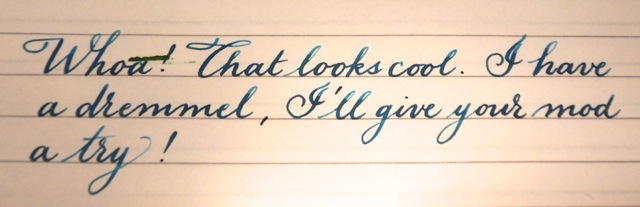 Whoa! That looks cool. I have
a dremmel, I'll give your mod
a try!